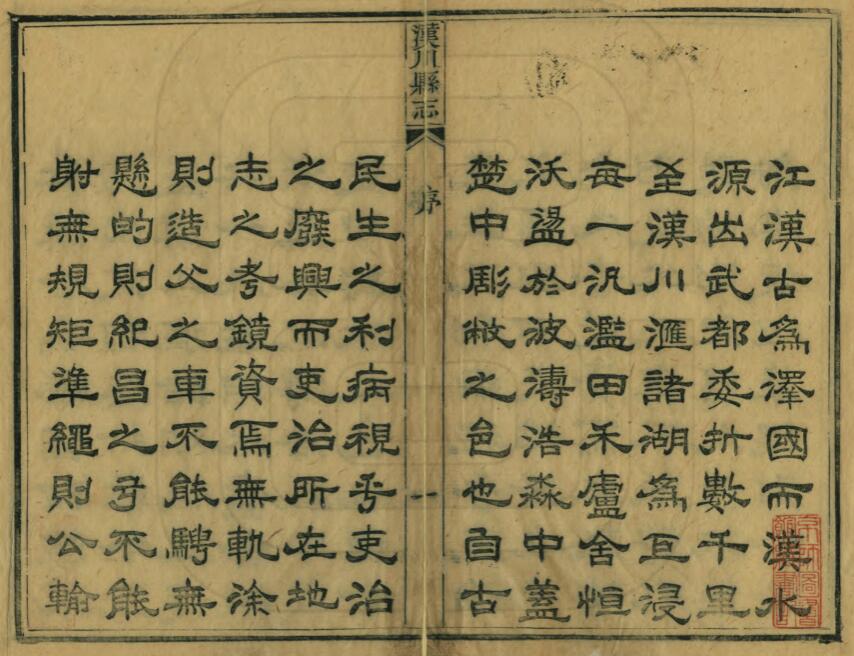 江漢古為澤國而漢水
源出武都委折數千里
至漢川滙諸湖為巨浸
每一汎濫田禾廬舍恒
沃盪於波濤浩淼中蓋
楚中彫敝之邑也自古
漢川縣志 序 一
民生之利病視乎吏治
之廢興而吏治所在地
志之考鏡資焉無軌涂
則造父之車不能騁無
懸的則紀昌之弓不能
射無規矩準繩則公輸